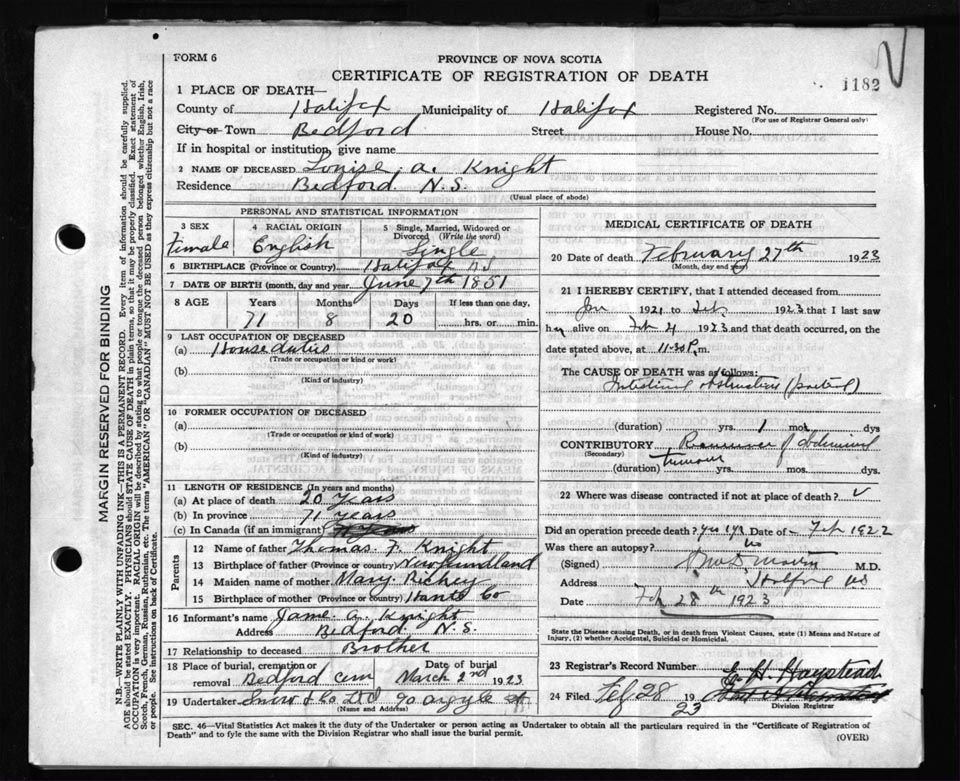 FORM 6
PROVINCE OF NOVA SCOTIA
CERTIFICATE OF REGISTRATION OF DEATH
1182
1 PLACE OF DEATH—
County of Halifax Municipality of Halifax Registered No.
(For use of Registrar General only)
City or Town Bedford Street House No.
If in hospital or institution, give name
2 NAME OF DECEASED Louise A. Knight
Residence Bedford N.S.
(Usual place of abode)
PERSONAL AND STATISTICAL INFORMATION
3 SEX Female
4 RACIAL ORIGIN English
5 Single, Married, Widowed or Divorced (Write the word) Single
6 BIRTHPLACE (Province or Country) Halifax N.S.
7 DATE OF BIRTH (month, day and year) June 7th 1851
8 AGE Years Months Days If less than one day,
71 8 20 hrs. or min.
9 LAST OCCUPATION OF DECEASED
(a) House duties
(Trade or occupation or kind or work)
(b)
(Kind of industry)
10 FORMER OCCUPATION OF DECEASED
(a)
(Trade or occupation or kind of work)
(b)
(Kind of industry)
11 LENGTH OF RESIDENCE (In years and months)
(a) At place of death 20 years
(b) In province 71 years
(c) In Canada (if an immigrant)
Parents
12 Name of father Thomas F. Knight
13 Birthplace of father (Province or Country) Newfoundland
14 Maiden name of mother Mary Richey
15 Birthplace of mother (Province or country) Hants Co
16 Informant's name Jame A. Knight
Address Bedford N.S.
17 Relationship to deceased Brother
18 Place of burial, cremation or removal Bedford Cem Date of burial March 2nd 1923
19 Undertaker Snow & Co Ltd 90 Argyle St
(Name and Address)
MEDICAL CERTIFICATE OF DEATH
20 Date of death February 27th 1923
(Month, day and year)
21 I HEREBY CERTIFY, that I attended deceased from
Jan 1921 to Feb. 1923 that I last saw
her alive on Feb 4 1923 and that death occurred, on the
date stated above, at 11.30 P.m.
The CAUSE OF DEATH was as follows:
Intestinal obstruction (partial)
(duration) yrs. 1 mos. dys
CONTRIBUTORY of abdominal
(Secondary) tumour
(duration) yrs. mos. dys.
22 Where was disease contracted if not at place of death?
Did an operation precede death? yes Date of Feb 1922
Was there an autopsy? no
(Signed) M.D.
Address Halifax NS
Date Feb 28th 1923
State the Disease causing Death, or in death from Violent Causes, state (1) Means and Nature of Injury, (2) whether Accidental, Suicidal or Homicidal.
23 Registrar's Record Number
E. H. Haystead
24 Filed Feb 28 1923
Division Registrar
SEC. 46—Vital Statistics Act makes it the duty of the Undertaker or person acting as Undertaker to obtain all the particulars required in the "Certificate of Registration of
Death" and to fyle the same with the Division Registrar who shall issue the burial permit.
(OVER)
MARGIN RESERVED FOR BINDING
N.B.—WRITE PLAINLY WITH UNFADING INK—THIS IS A PERMANENT RECORD. Every item of information should be carefully supplied.
AGE should be stated EXACTLY. PHYSICIANS should STATE CAUSE OF DEATH in plain terms, so that it may be properly classified. Exact statement of
OCCUPATION is very important. RACIAL ORIGIN will be described by stating to what people or tongue the deceased person belonged whether English, Irish,
Scotch, French, German, Russian, Ruthenian, etc. The terms "AMERICAN" or "CANADIAN" MUST NOT BE USED as they express citizenship but not a race
or people. See instructions on back of Certificate.